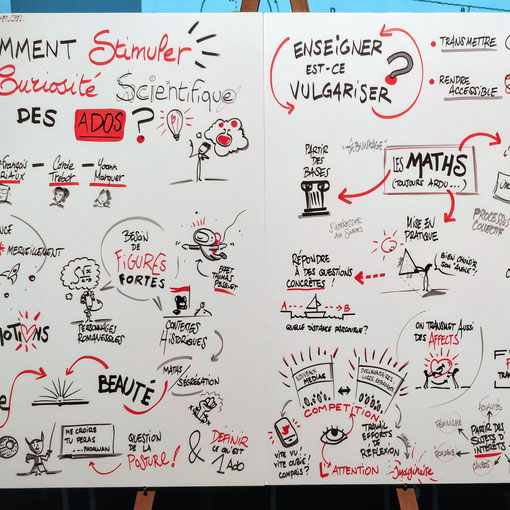 OMMENT Stimuler
Curiosité Scientifique
DES ADOS ?
François — Carole — Yoann
RIAUX Trébot Marquer
NCE
MERVEILLEMENT
MOTIONS
BESOIN
DE
FIGURES
FORTES
PERSONNAGES
ROMANESQUES
CONTEXTES
HISTORIQUES
EFFET
THOMAS
PESQUET
MATHS
SÉGRÉGATION
BEAUTÉ
ME CROIRE
TU FERAS
...PADAWAN
QUESTION
DE LA
POSTURE !
& DÉFINIR
CE QU'EST
1 ADO
ENSEIGNER
EST-CE
VULGARISER ?
• TRANSMETTRE
• RENDRE
ACCESSIBLE
PARTIR
DES
BASES
LES MATHS
(TOUJOURS ARDU...)
PROCESSUS
COLLECTIF
MISE EN
PRATIQUE
BIEN CHOISIR
SON "ANGLE" !
RÉPONDRE
À DES QUESTIONS
CONCRÈTES !
A B
QUELLE DISTANCE PARCOURUE ?
ON TRANSMET AUSSI
DES AFFECTS
NOUVEAUX
MÉDIAS
COMPÉTITION
VITE VU !
VITE OUBLIÉ !
COMPRIS ?
TRAVAIL
EFFORTS
DE
RÉFLEXION
L'ATTENTION
Imaginaire
PARTIR DES
SUJETS D'
INTÉRÊTS